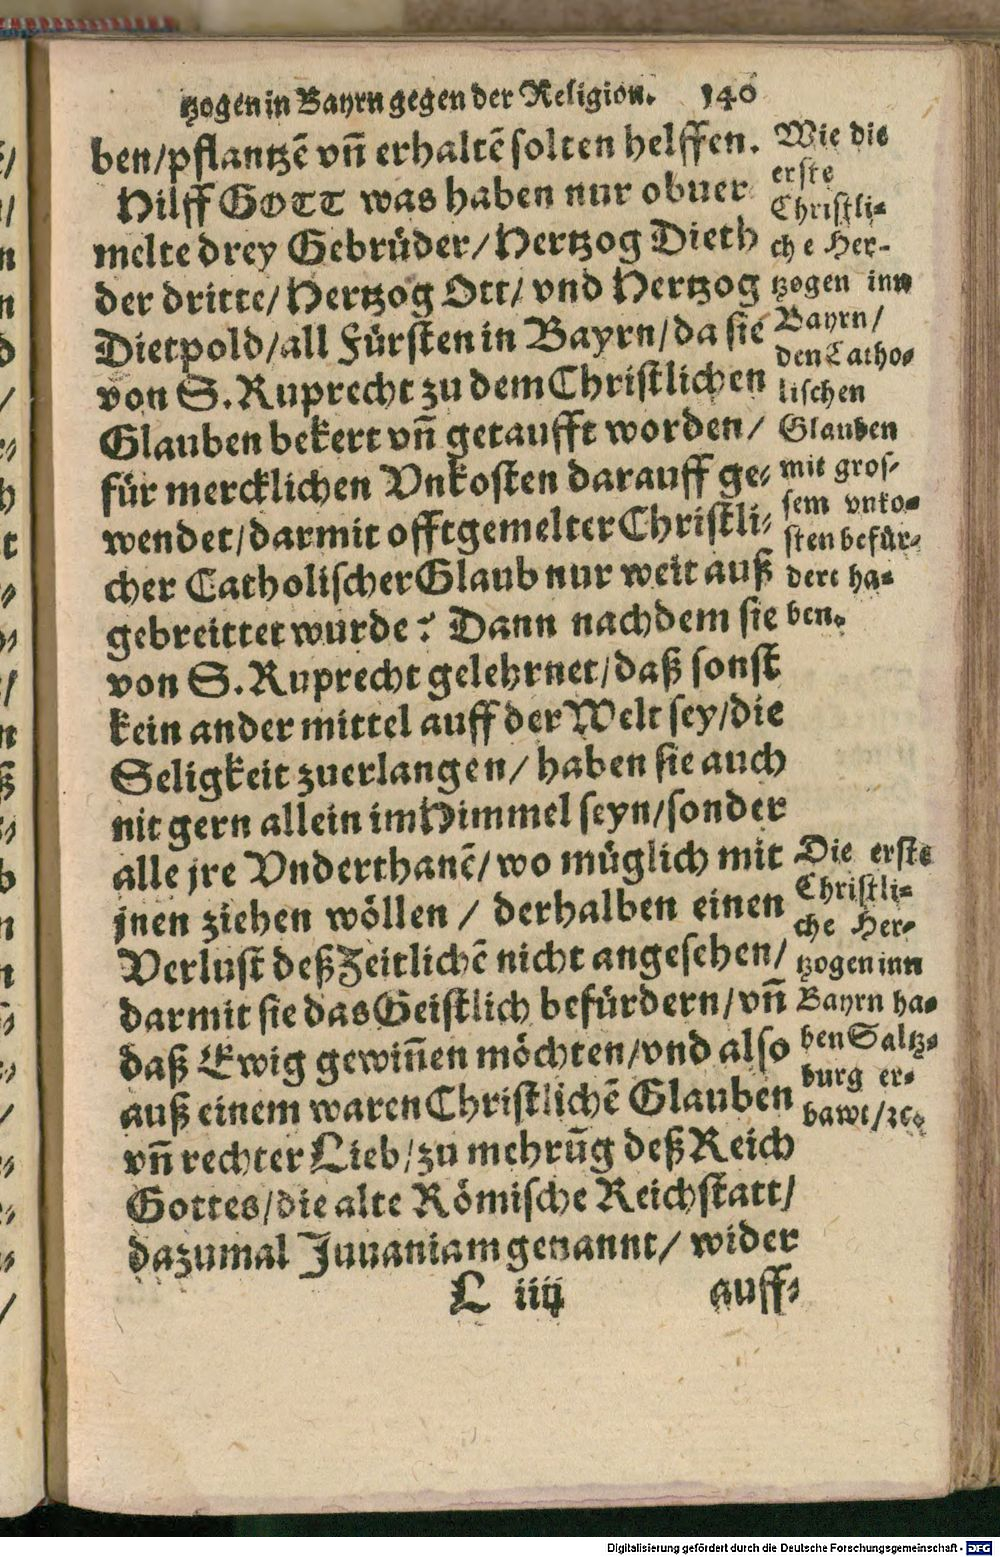 tzogen in Bayrn gegen der Religion. 140
ben/pflantzē vñ erhaltē solten helffen.
Hilff GOTT was haben nur obuer
melte drey Gebrüder/Hertzog Dieth
der dritte/Hertzog Ott/vnd Hertzog
Dietpold/all Fürsten in Bayrn/da sie
von S. Ruprecht zu dem Christlichen
Glauben bekert vñ getaufft worden/
für mercklichen Vnkosten darauff ge⸗
wendet/darmit offtgemelter Christli⸗
cher Catholischer Glaub nur weit auß
gebreittet wurde? Dann nachdem sie
von S. Ruprecht gelehrnet/daß sonst
kein ander mittel auff der Welt sey/die
Seligkeit zuerlangen/haben sie auch
nit gern allein im Himmel seyn/sonder
alle jre Vnderthanē/wo müglich mit
jnen ziehen wöllen/derhalben einen
Verlust deß Zeitlichē nicht angesehen/
darmit sie das Geistlich befürdern/vñ
daß Ewig gewiñen möchten/vnd also
auß einem waren Christlichē Glauben
vñ rechter Lieb/zu mehrūg deß Reich
Gottes/die alte Römische Reichstatt/
dazumal Juuaniam genannt/wider
L iiij auff⸗
Wie die
erste
Christli⸗
che Her⸗
tzogen inn
Bayrn/
den Catho⸗
lischen
Glauben
mit gros⸗
sem vnko⸗
sten befür⸗
dert ha⸗
ben.
Die erste
Christli⸗
che Her⸗
tzogen inn
Bayrn ha⸗
ben Saltz⸗
burg er⸗
bawt/ꝛc.
Digitalisierung gefördert durch die Deutsche Forschungsgemeinschaft - DFG